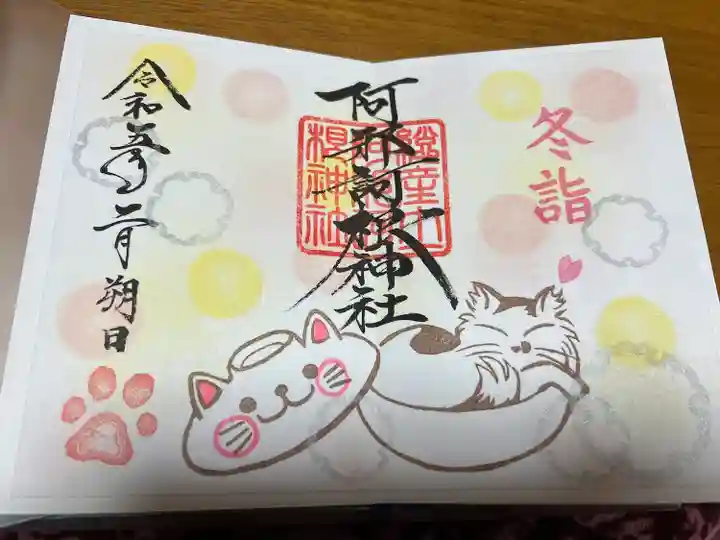 冬詣
阿邪訶根神社
総産土
根神社
令和五年二月朔日